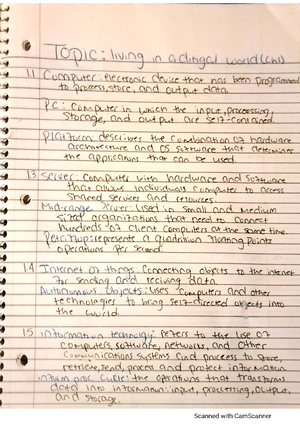 Topic: living in a dingal world (Ch1)
1.1 Computer: electronic device that has been programmed
to process, store, and output data
PC: Computer in which the input, processing,
storage, and output are self-contained
Platform: describes the combination of hardware
architecture and OS software that determines
the applications that can be used.
1.3 Server: Computer with hardware and software
that allows individuals computer to access
shared services and resources.
Mid-range Server: used in small and medium
sized organizations that need to connect
hundreds of client computers at the same time.
represents a quadrillion floating points
operations per second
1.4 Internet of things: Connecting objects to the internet
for sending and reciving data.
Autonomous Objects: uses computers and other
technologies to bring self-directed objects into
the world.
1.5 Information technology: refers to the use of
computers, software, networks, and other
communications systems and process to store,
retrieve, send, process and protect information
inform proc. Cycle: the operations that transforms
data into information: input, processing, output,
and storage.
Scanned with CamScanner